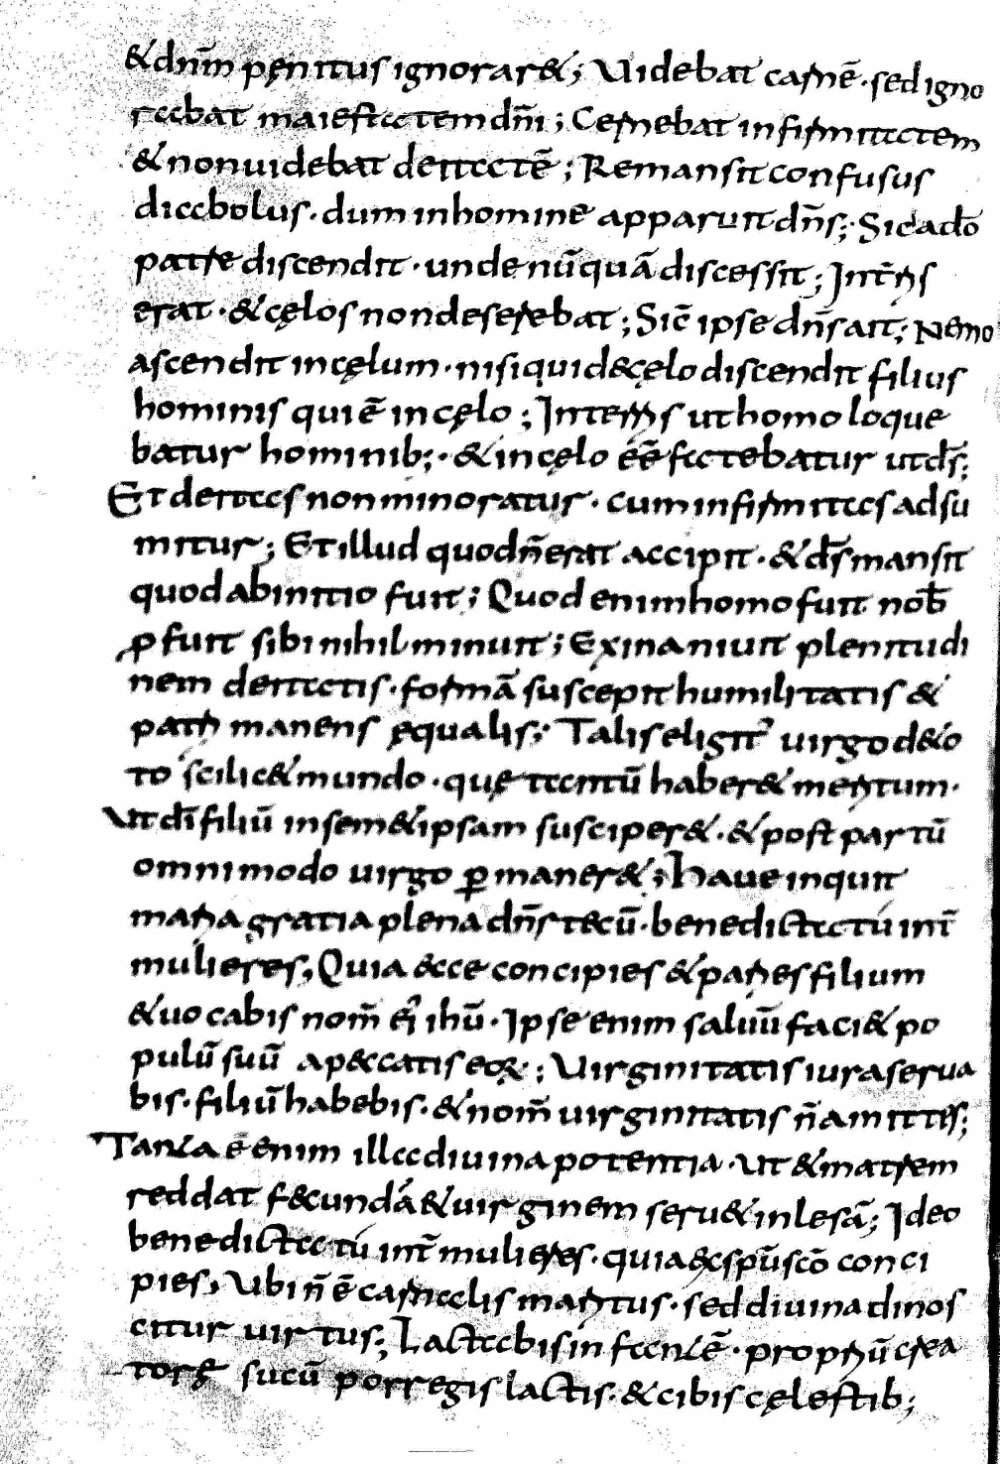 & dnm̄ pęnitus ignorar&; Uidebat carnē· sed igno
rabat maiestatem dnī; Cernebat infirmitatem
& non uidebat deitatē; Remansit confusus
diabolus· dum in homine apparuit dn̄s; Sic ad o
patre discendit· unde nūquā discessit; In terris
erat· & cęlos non deserebat; Sic̄ ipse dn̄s ait; Nemo
ascendit in cęlum· nisi qui d& cęlo discendit filius
hominis qui ē in cęlo; In terris ut homo loque
batur hominib;· & in cęlo eē fatebatur ut ds̄;
Et deitas non minoratur· cum infirmitas adsu
mitur; Et illud quod n̄ erat accipit· & ds̄ mansit
quod ab initio fuit; Quod enim homo fuit nob̄
ꝓfuit sibi nihil minuit; Exinaniuit plenitudi
nem deitatis· formā suscepit humilitatis &
patri manens ęqualis; Talis eligit᷑ uirgo d& o
to scilic& mundo· quę tantū haber& meritum·
Ut dī filiū in sem& ipsam susciper&· & post partū
omnimodo uirgo ꝑmaner&; Haue inquit
maria gratia plena dn̄s tecū· benedicta tú int̄
mulieres, Quia &cce concipies & paries filium
& uocabis nom̄ ei᷒ ihū· Ipse enim saluū faci& po
pulū suū a p&ccatis eoꝝ; Uirginitatis iura serua
bis· filiū habebis· & nom̄ uirginitatis n̄ amittes;
Tanta ē enim illa diuina potentia· ut & matrem
reddat f&cundā & uirginem seru& inlesā; Ideo
benedicta tú int̄ mulieres· quia &c spū scō conci
pies, Ubi n̄ ē carnalis maritus· sed diuina dinos
citur uirtus; Lactabis infantē· propriū crea
torę sucū porregis lactis· & cibis cęlestib;